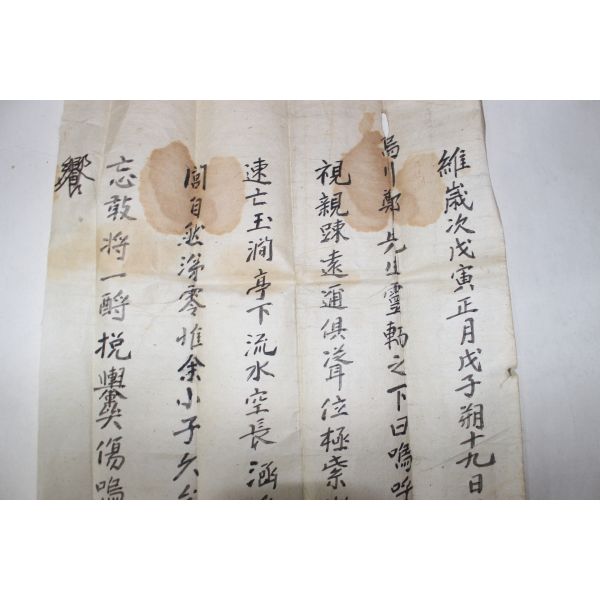 維歲次戊寅正月戊子朔十九日
烏川鄭先生靈輀之下曰嗚呼
視親踈遠邇俱送耳位極崇
速亡玉澗亭下流水空長涵
閭自然涕零惟余小子久
忘敢將一酹挽輿哭傷嗚
饗